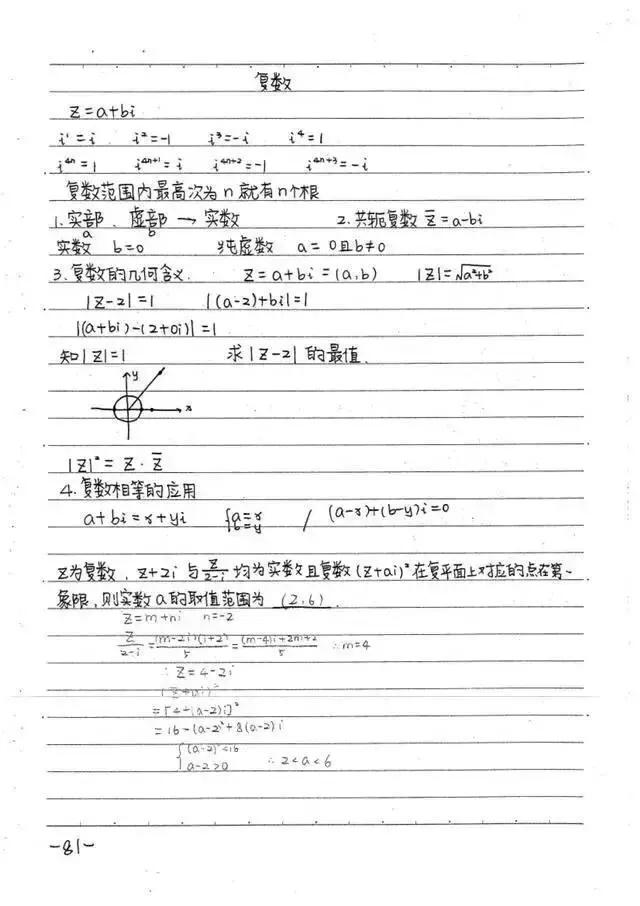 复数
z=a+bi
i¹=i i²=-1 i³=-i i⁴=1
i⁴ⁿ=1 i⁴ⁿ⁺¹=i i⁴ⁿ⁺²=-1 i⁴ⁿ⁺³=-i
复数范围内最高次为n就有n个根
1.实部、虚部→实数 2.共轭复数 z̅=a-bi
a b
实数 b=0 纯虚数 a=0且b≠0
3.复数的几何含义. z=a+bi=(a,b) |z|=√(a²+b²)
|z-2|=1 |(a-2)+bi|=1
|(a+bi)-(2+0i)|=1
知|z|=1 求|z-2|的最值.
y
x
|z|²=z·z̅
4.复数相等的应用
a+bi=x+yi {a=x b=y / (a-x)+(b-y)i=0
z为复数,z+2i与z/(2-i)均为实数且复数(z+ai)²在复平面上对应的点在第一
象限,则实数a的取值范围为 (2,6).
z=m+ni n=-2
z/(2-i)=(m-2i)(i+2)/5=(m-4)i+2m+2/5 ∴m=4
∴z=4-2i
(z+ai)²
=[4+(a-2)i]²
=16-(a-2)²+8(a-2)i
{(a-2)²<16
a-2>0 ∴2<a<6
-81-